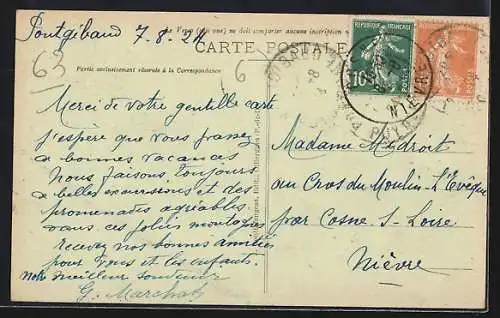 Pontgibaud 7.8.24
CARTE POSTALE
Partie exclusivement réservée à la Correspondance
63
6
Merci de votre gentille carte
j'espère que vous passez
de bonnes vacances
Nous faisons, toujours
de belles excursions et des
promenades agréables
dans ces jolies montagnes
recevez nos bonnes amitiés
pour vous et les enfants.
Notre meilleur souvenir
G. Marchat
REPUBLIQUE FRANCAISE
10
POSTES
Madame
au Cros du Moulin l'Evêque
par Cosne s. Loire
Nièvre